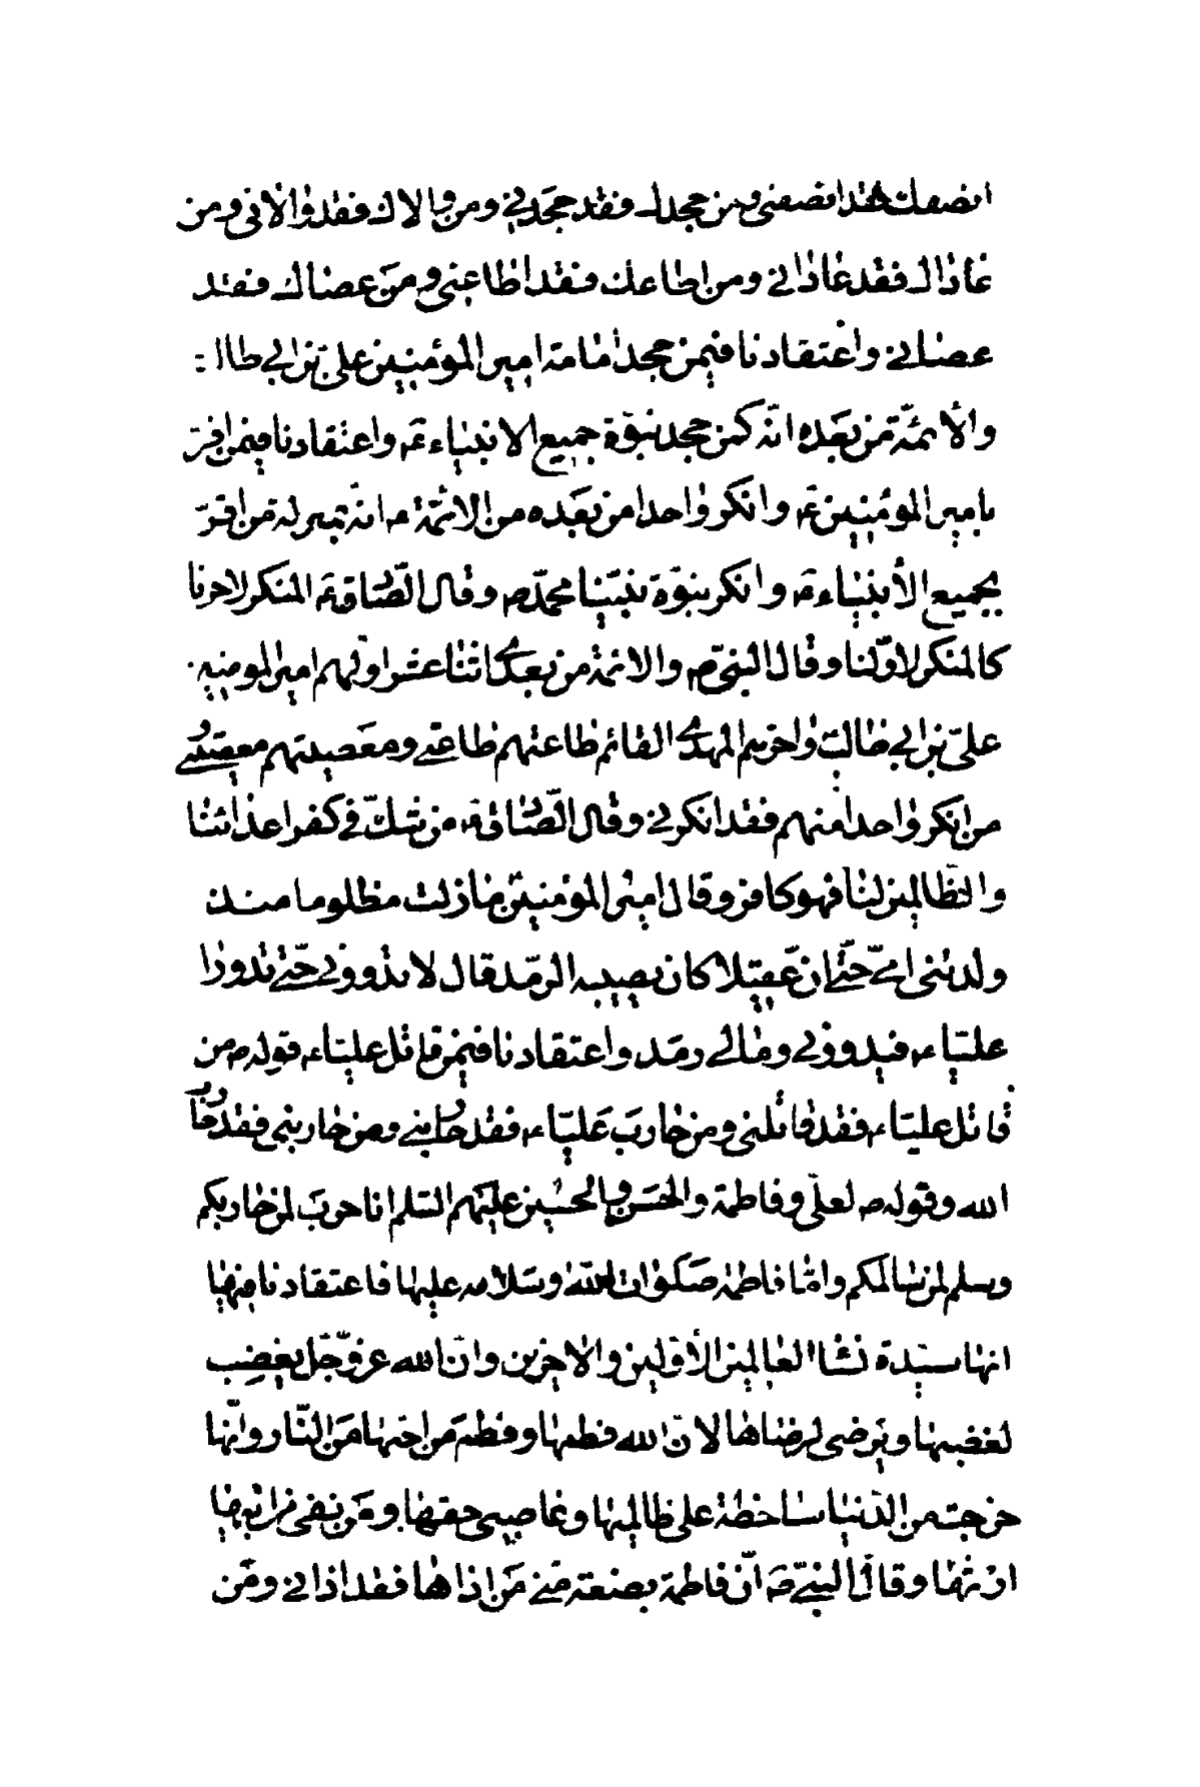 انصفك فقد انصفنی ومن جحدك فقد جحدنی ومن والاك فقد والانی ومن
عاداك فقد عادانی ومن اطاعك فقد اطاعنی ومن عصاك فقد
عصانی واعتقادنا فیمن جحد امامة امیر المؤمنین علی بن ابی طالب
والأئمّة من بعده انّه کمن جحد نبوّة جمیع الانبیاء ءم واعتقادنا فیمن اقرّ
بامیر المؤمنین ءم وانکر واحدا من بعده من الائمّة ءم انّه بمنزلة من اقرّ
بجمیع الأنبیاء ءم وانکر بنبوّة نبیّنا محمّد ص وقال الصّادق ءم المنکر لاخرنا
کالمنکر لاوّلنا وقال النبیّ ص والائمة من بعدی اثنا عشر اوّلهم امیر المومنین
علیّ بن ابی طالب واخرهم المهدی القائم طاعتهم طاعتی ومعصیتهم معصیتی
من انکر واحدا منهم فقد انکرنی وقال الصّادق ءم من شكّ فی کفر اعدائنا
والظّالمین لنا فهو کافر وقال امیر المؤمنین ما زلت مظلوما منذ
ولدتنی امّی حتّی ان عقیلا کان یصیبه الرمد قال لا تذرونی حتّی تذروا
علیّا ء فیذرونی وما لی رمد واعتقادنا فیمن قاتل علیّا ء قوله ص من
قاتل علیّا ء فقد قاتلنی ومن حارب علیّا ء فقد حاربنی ومن حاربنی فقد حارب
الله وقوله ص لعلی وفاطمة والحسن والحسین علیهم السلم انا حرب لمن حاربکم
وسلم لمن سالمکم وامّا فاطمة صلوات الله وسلامه علیها فاعتقادنا فیها
انها سیّدة نساء العالمین الأوّلین والاخرین وانّ الله عزّ وجّل یغضب
لغضبها ویرضی لرضاها لانّ الله فطمها وفطم من احبّها من النّار وانّها
خرجت من الدّنیا ساخطة علی ظالمیها وغاصبی حقها ومن نفی من ابیها
ارثها وقال النبیّ ص انّ فاطمة بضعة منّی من اذاها فقد اذانی ومن